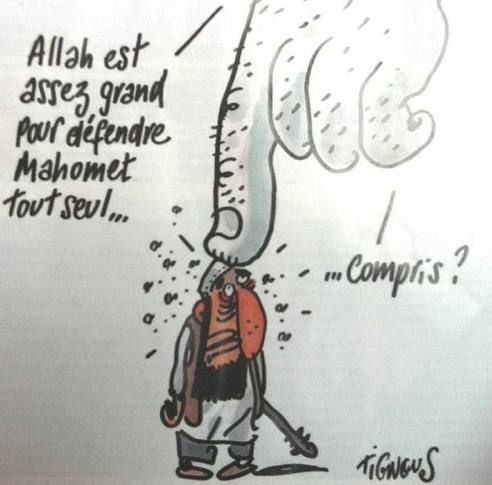 Allah est
assez grand
pour défendre
Mahomet
tout seul...
...compris ?
TIGNOUS